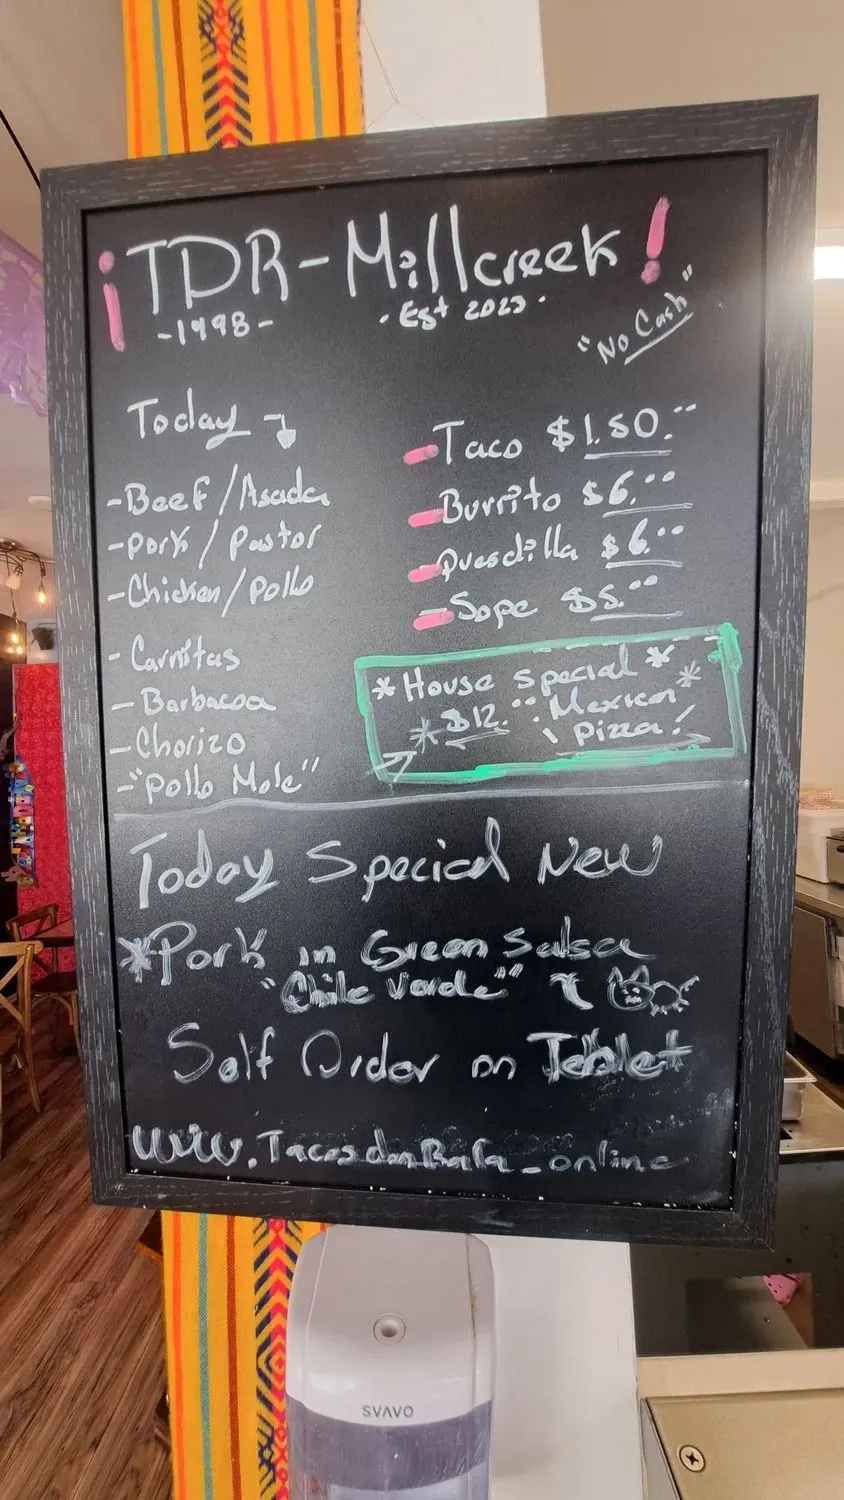 ¡TDR-Millcreek!
-1998-
·Est 2023·
"No Cash"
Today
-Beef/Asada
-Pork/Pastor
-Chicken/Pollo
-Carnitas
-Barbacoa
-Chorizo
-"Pollo Mole"
-Taco $1.50.
-Burrito $6.00
-Quesdilla $6.00
-Sope $5.00
*House special*
*$12.00 Mexican*
Pizza!
Today Special New
*Pork in Green Salsa
"Chile Verde"
Self Order on Teblet
www.TacosdonRafa_online
SVAVO